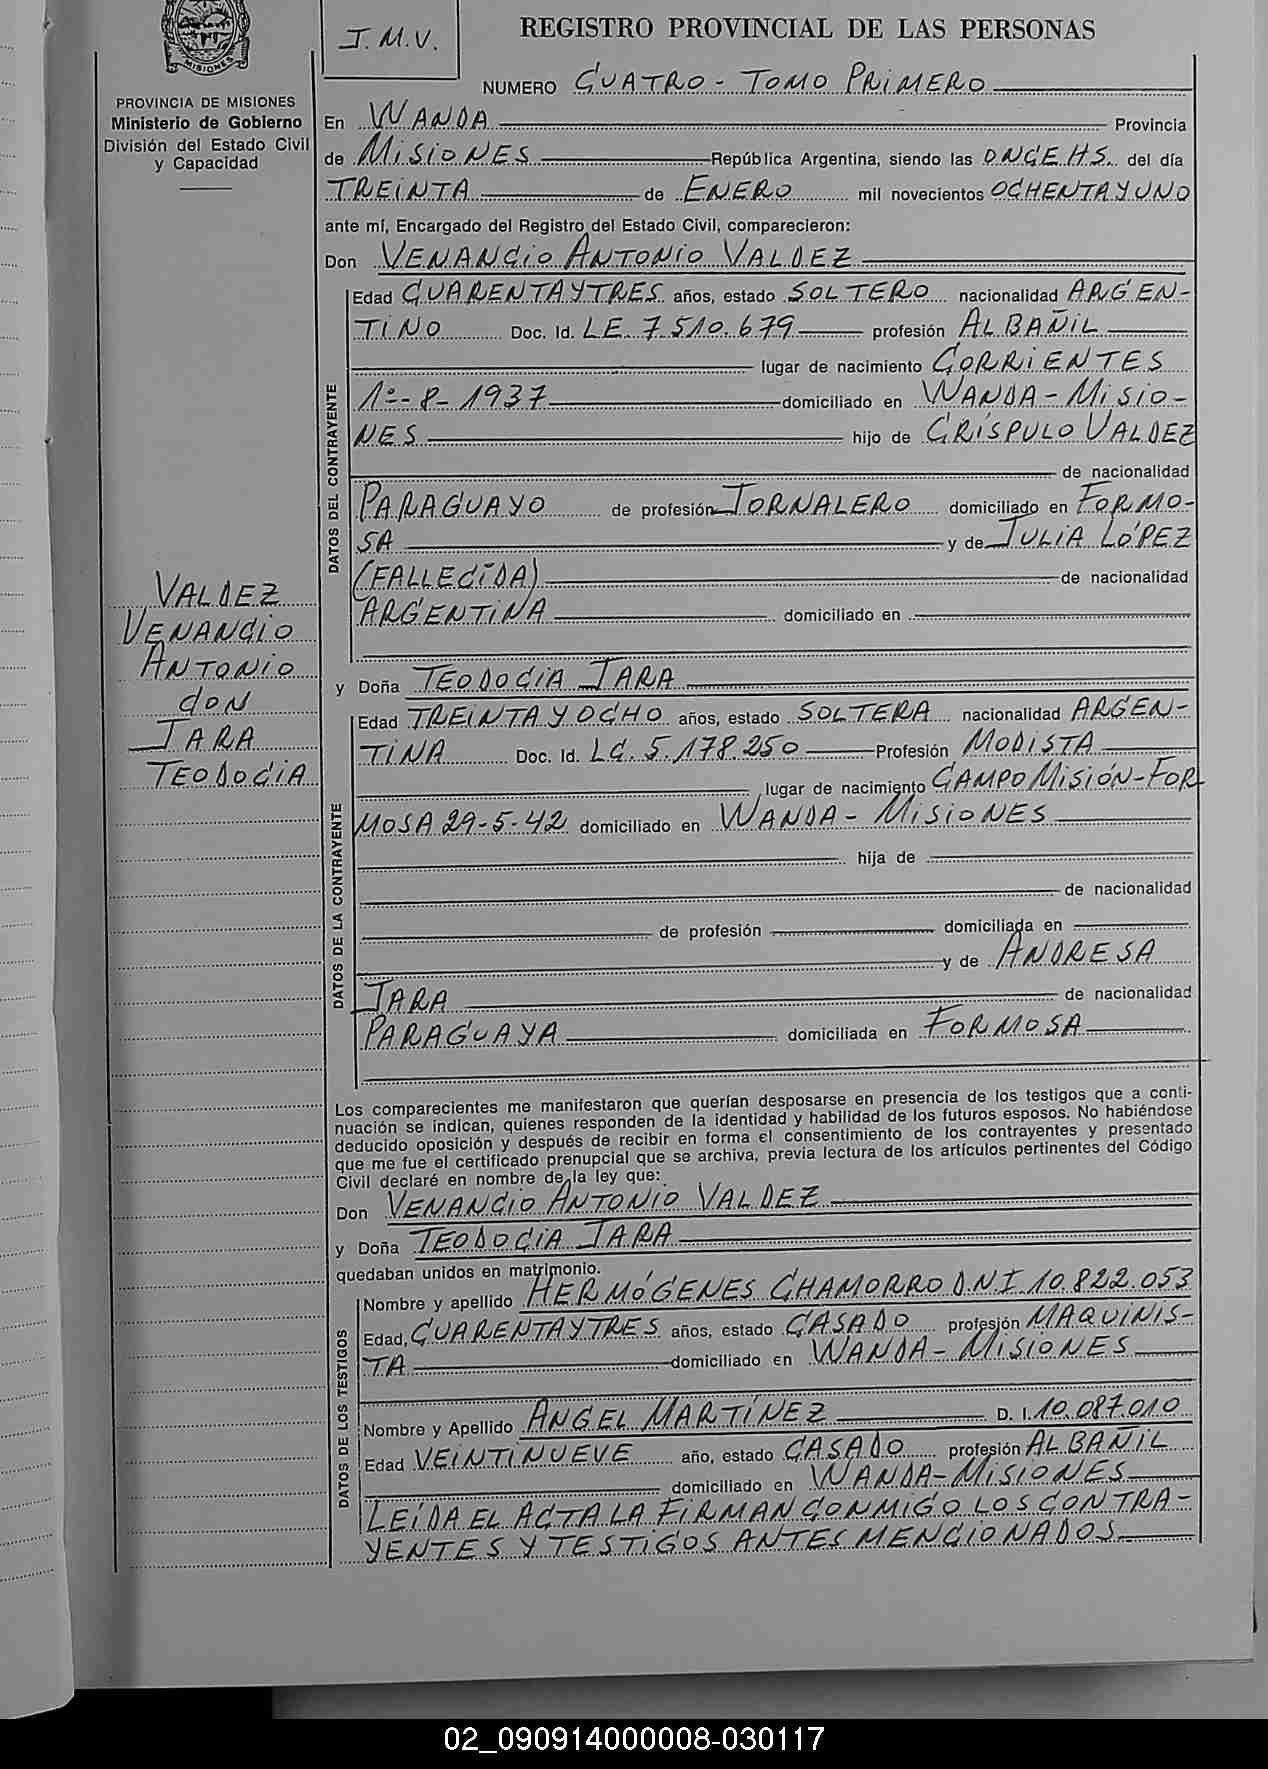 MISIONES
J.M.V.
REGISTRO PROVINCIAL DE LAS PERSONAS
NUMERO CUATRO - TOMO PRIMERO
PROVINCIA DE MISIONES
Ministerio de Gobierno
División del Estado Civil
y Capacidad
En WANDA Provincia
de MISIONES República Argentina, siendo las ONCE HS. del día
TREINTA de ENERO mil novecientos OCHENTA Y UNO
ante mí, Encargado del Registro del Estado Civil, comparecieron:
Don VENANCIO ANTONIO VALDEZ
DATOS DEL CONTRAYENTE
Edad CUARENTA Y TRES años, estado SOLTERO nacionalidad ARGEN-
TINO Doc. Id. L.E. 7.510.679 profesión ALBAÑIL
lugar de nacimiento CORRIENTES
1º-8-1937 domiciliado en WANDA - MISIO-
NES hijo de CRÍSPULO VALDEZ
de nacionalidad
PARAGUAYO de profesión JORNALERO domiciliado en FORMO-
SA y de JULIA LÓPEZ
(FALLECIDA) de nacionalidad
ARGENTINA domiciliado en
VALDEZ
VENANCIO
ANTONIO
CON
JARA
TEODOCIA
y Doña TEODOCIA JARA
DATOS DE LA CONTRAYENTE
Edad TREINTA Y OCHO años, estado SOLTERA nacionalidad ARGEN-
TINA Doc. Id. L.C. 5.178.250 Profesión MODISTA
lugar de nacimiento CAMPO MISIÓN-FOR
MOSA 29-5-42 domiciliado en WANDA - MISIONES
hija de
de nacionalidad
de profesión domiciliada en
y de ANDRESA
JARA de nacionalidad
PARAGUAYA domiciliada en FORMOSA
Los comparecientes me manifestaron que querían desposarse en presencia de los testigos que a conti-
nuación se indican, quienes responden de la identidad y habilidad de los futuros esposos. No habiéndose
deducido oposición y después de recibir en forma el consentimiento de los contrayentes y presentado
que me fue el certificado prenupcial que se archiva, previa lectura de los artículos pertinentes del Código
Civil declaré en nombre de la ley que:
Don VENANCIO ANTONIO VALDEZ
y Doña TEODOCIA JARA
quedaban unidos en matrimonio.
DATOS DE LOS TESTIGOS
Nombre y apellido HERMÓGENES CHAMORRO D.N.I 10.822.053
Edad, CUARENTA Y TRES años, estado CASADO profesión MAQUINIS-
TA domiciliado en WANDA - MISIONES
Nombre y Apellido ANGEL MARTÍNEZ D. I. 10.087.010
Edad VEINTINUEVE año, estado CASADO profesión ALBAÑIL
domiciliado en WANDA - MISIONES
LEÍDA EL ACTA LA FIRMAN CONMIGO LOS CONTRA-
YENTES Y TESTIGOS ANTES MENCIONADOS
02_090914000008-030117